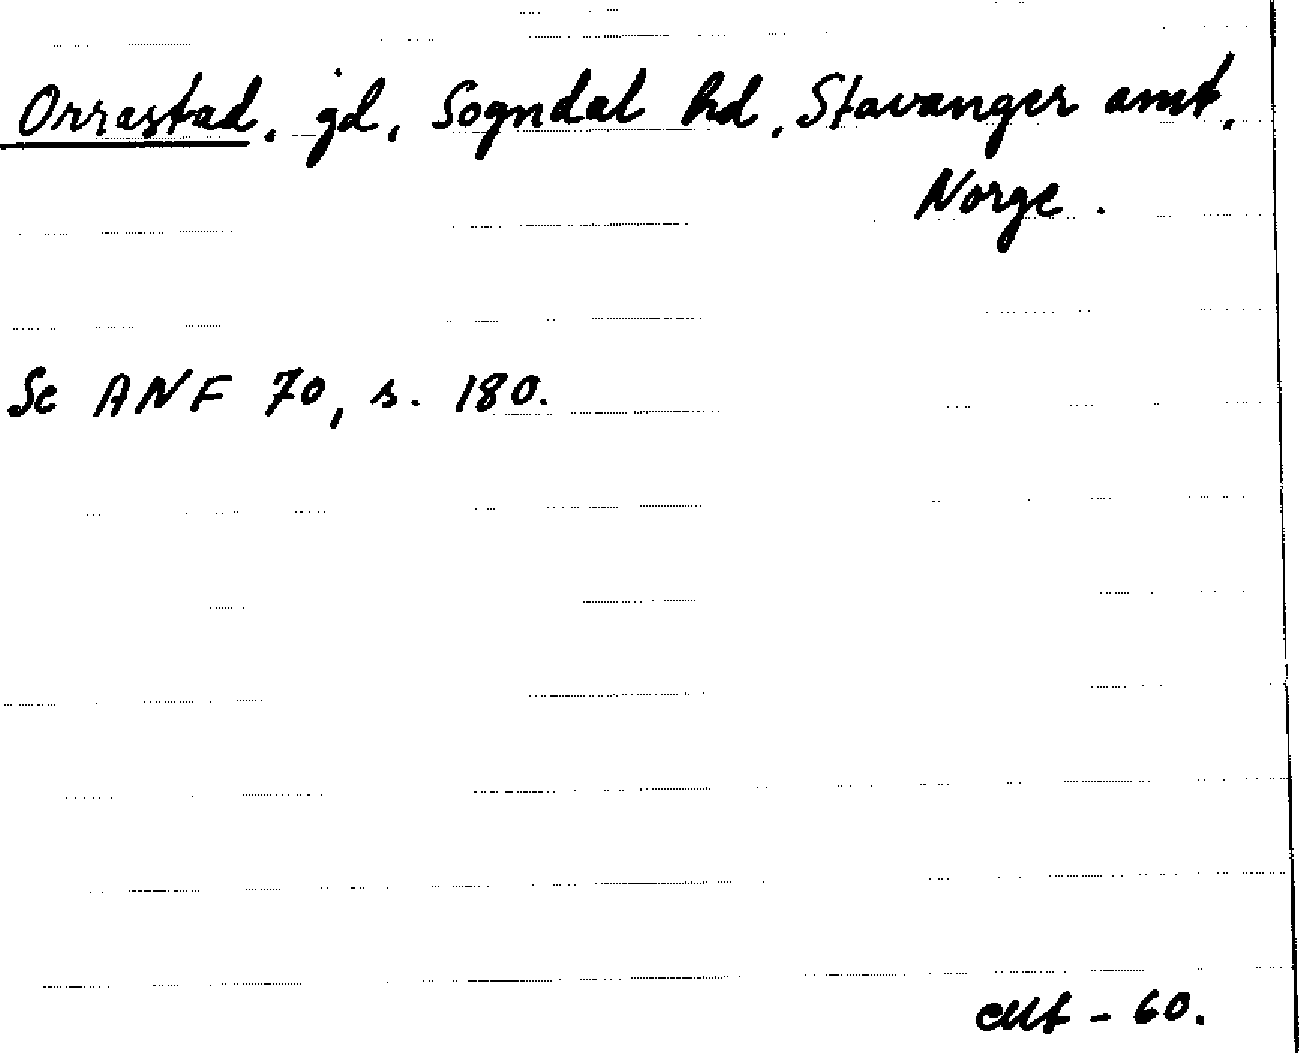 Orrestad, gd, Sogndal hd, Stavanger amt,
Norge.
Se ANF 70, s. 180.
- 60.